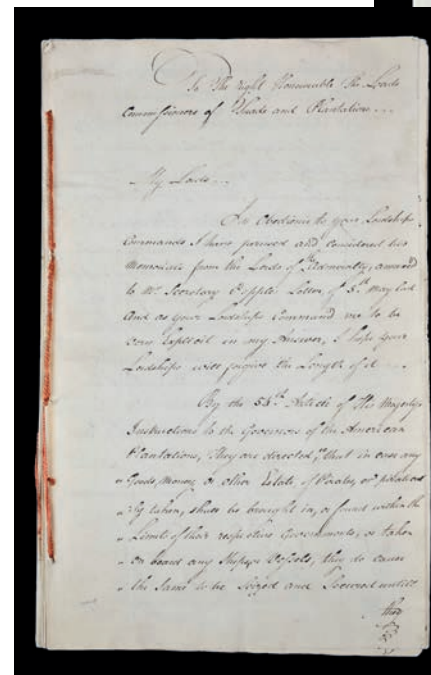 To the Right Honourable the Lords
Commissioners of Trade and Plantations...
My Lords...
In Obedience to your Lordships
Commands I have perused and considered two
Memorials from the Lords of the Admiralty, annexed
to Mr. Secretary Popple Letter of 5th May last
And as your Lordships Command me to be
very Explicit in my Answer, I hope your
Lordships will forgive the Length of it...
By the 56th Article of His Majestys
Instructions to the Governors of the American
Plantations, They are directed, "that in case any
" Goods, Money, or other Estate, of Pirates, or piratical
" ly taken, shall be brought in, or found within the
" Limits of their respective Governments, or taken
" on board any Ships or Vessels, they do cause
" the same to be Seized and Secured untill
they